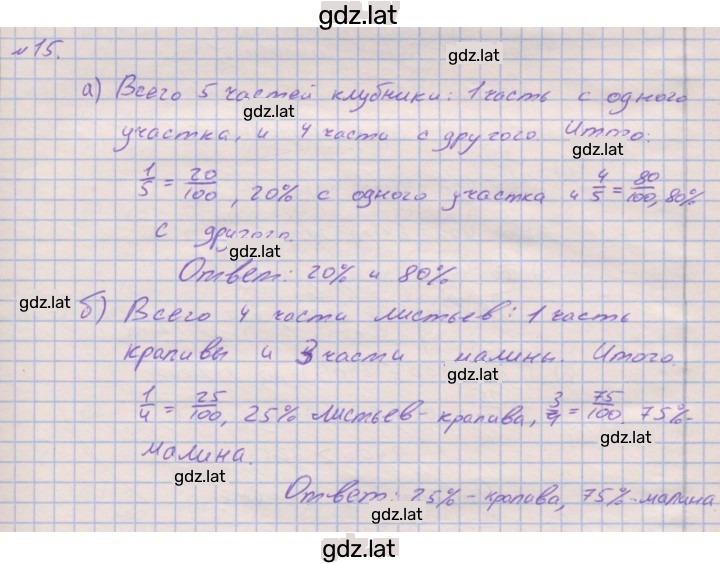 gdz.lat
№15.
gdz.lat
а) Всего 5 частей клубники: 1 часть с одного
gdz.lat
участка, и 4 части с другого. Итого:
gdz.lat
1/5 = 20/100, 20% с одного участка и 4/5 = 80/100, 80%
с другого.
gdz.lat
Ответ: 20% и 80%
gdz.lat
б) Всего 4 части листьев: 1 часть
крапивы и 3 части малины. Итого
gdz.lat
1/4 = 25/100, 25% листьев - крапива, 3/4 = 75/100. 75% -
gdz.lat
малина.
gdz.lat
Ответ: 25% - крапива, 75% - малина
gdz.lat
gdz.lat